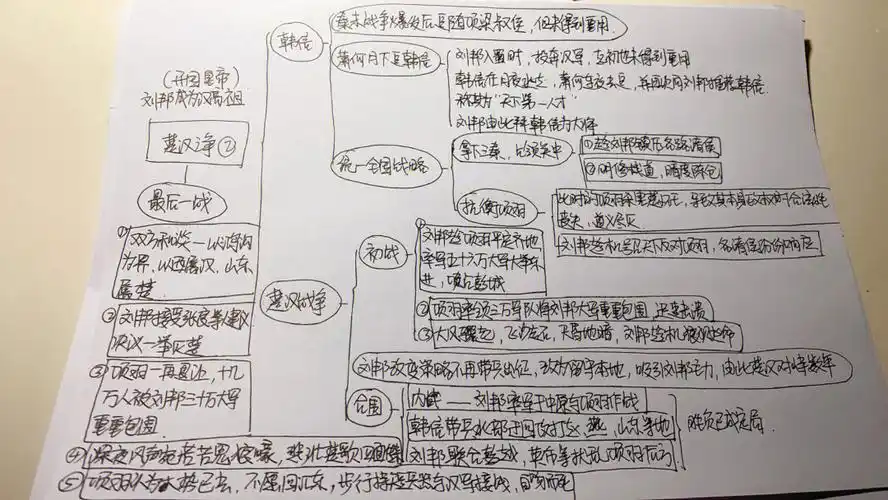 (开国皇帝)
刘邦成为汉高祖
楚汉争②
最后一战
①
双方和谈—以鸿沟
为界，以西属汉，山东
属楚
②刘邦接受张良等人建议
决议一举灭楚
③项羽一再退让，十几
万人被刘邦三十万大军
重重包围
④深夜风声
楚歌
⑤项羽认为大势已去，不愿回江东，步行持短兵器与汉军接战，自刎而死
韩信
秦末战争爆发后是随项梁叔侄，但未得到重用
萧何月下追韩信
刘邦入蜀时，投奔汉军，起初也未得到重用
韩信在月夜出走，萧何连夜去追，并再次向刘邦推荐韩信
称其为"天下第一人才"
刘邦由此拜韩信为大将
统一全国战略
拿下三秦，占领关中
①趁刘邦
②明修栈道，暗度陈仓
抗衡项羽
丧失，道义受
刘邦趁机号召天下反对项羽，各诸侯纷纷响应
楚汉战争
初战
①
刘邦趁项羽平定齐地
率军五十六万大军大举东
进，攻占彭城
②项羽率领三万军队将刘邦大军重重包围
③大风骤起，飞沙走石，天昏地暗，刘邦趁机
刘邦改变策略不再带兵出征，改为留守本地，吸引刘邦主力，由此楚汉对峙数年
合围
内线——刘邦率军于中原与项羽作战
韩信带兵北部迂回攻打
山东等地
刘邦联合彭越，英布等扰乱项羽后方
胜负已成定局